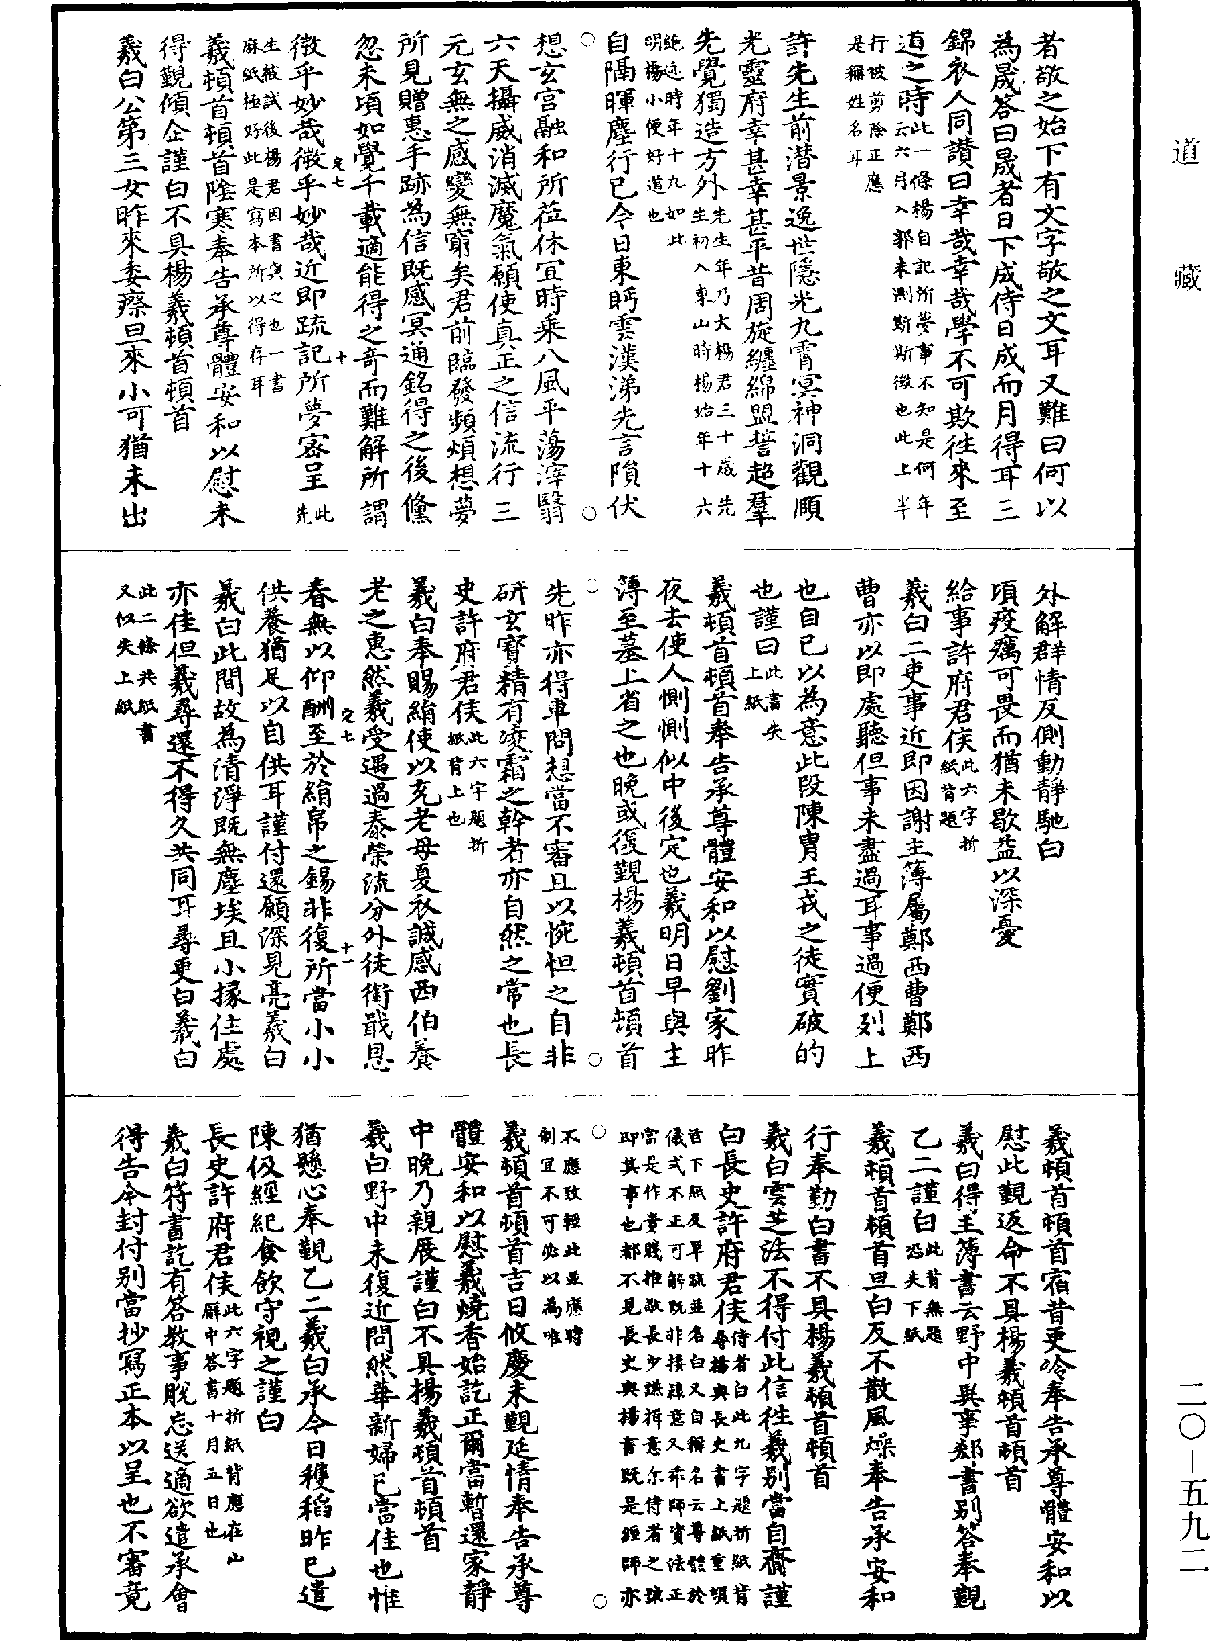 道藏
者敬之始下有文字敬之文耳又難曰何以
為晟答曰晟者日下成侍日成而月得耳三
錦衣人同讚曰幸哉幸哉學不可欺往來至
道之時此一條楊自記所夢事不知是何年
云六月入郭未測斯斯徵也此上半
行被剪除正應
是稱姓名耳
許先生前潛景逸世隱光九霄冥神洞觀顧
光靈府幸甚幸甚平昔周旋纏綿盟誓超羣
先覺獨造方外先生年乃大楊君三十歲先
生初入東山時楊始年十六
絕迹時年十九如此
明楊小便好道也
自隔暉塵行已今日東眄雲漢涕先言隕伏
想玄宮融和所莅休宜時乘八風平蕩滓翳
六天攝威消滅魔氣願使真正之信流行三
元玄無之感變無窮矣君前臨發頻煩想夢
所見贈惠手跡為信既感冥通銘得之後儻
忽未頃如覺千載適能得之奇而難解所謂
定七 十
微乎妙哉微乎妙哉近即疏記所夢密呈此
先
生被試後楊君因書與之也一書
麻紙極好此是寫本所以得存耳
羲頓首頓首陰寒奉告承尊體安和以慰未
得覲傾企謹白不具楊羲頓首頓首
羲白公第三女昨來委瘵旦來小可猶未出
外解羣情反側動靜馳白
頃疫癘可畏而猶未歇益以深憂
給事許府君侯此六字折
紙背題
羲白二吏事近即因謝主簿屬鄭西曹鄭西
曹亦以即處聽但事未盡過耳事過便列上
也自己以為意此段陳胄王戎之徒實破的
也謹白此書失
上紙
羲頓首頓首奉告承尊體安和以慰劉家昨
夜去使人惻惻似中後定也羲明日早與主
薄至墓上省之也晚或復覲楊羲頓首頓首
先昨亦得車問想當不審且以惋怛之自非
研玄寶精有凌霜之幹者亦自然之常也長
史許府君侯此六字題折
紙背上也
羲白奉賜絹使以充老母夏衣誠感西伯養
老之惠然羲受遇過泰榮流分外徒銜戢恩
定七 十一
春無以仰酬至於絹帛之錫非復所當小小
供養猶足以自供耳謹付還願深見亮羲白
羲白此間故為清淨既無塵埃且小掾住處
亦佳但羲尋還不得久共同耳尋更白羲白
此二條共紙書
又似失上紙
羲頓首頓首宿昔更冷奉告承尊體安和以
慰此覲返命不具楊羲頓首頓首
羲白得主薄書云野中異事郯書別答奉覲
乙二謹白此背無題
恐失下紙
羲頓首頓首旦白反不散風燥奉告承安和
行奉勤白書不具楊羲頓首頓首
羲白雲芝法不得付此信往羲別當自齎謹
白長史許府君侯侍者白此九字題折紙背
尋楊與長史書上紙重頓
首下紙及單疏並名白又自稱名云尊體於
儀式不正可解既非接隸意又乖師資法正
當是作貴賤推敬長少謙揖意尔侍者之疎
即其事也都不見長史與楊書既是經師亦
不應致輕此並應時
制宜不可必以為唯
羲頓首頓首吉日攸慶未覲延情奉告承尊
體安和以慰羲燒香始訖正爾當暫還家靜
中晚乃親展謹白不具楊羲頓首頓首
羲白野中未復近問然華新婦已當佳也惟
猶懸心奉覲乙二羲白承今日穫稻昨已遣
陳伋經紀食飲守視之謹白
長史許府君侯此六字題折紙背應在山
廨中答書十月五日也
羲白符書訖有答教事脫忘送適欲遣承會
得告今封付別當抄寫正本以呈也不審竟
二〇－五九二